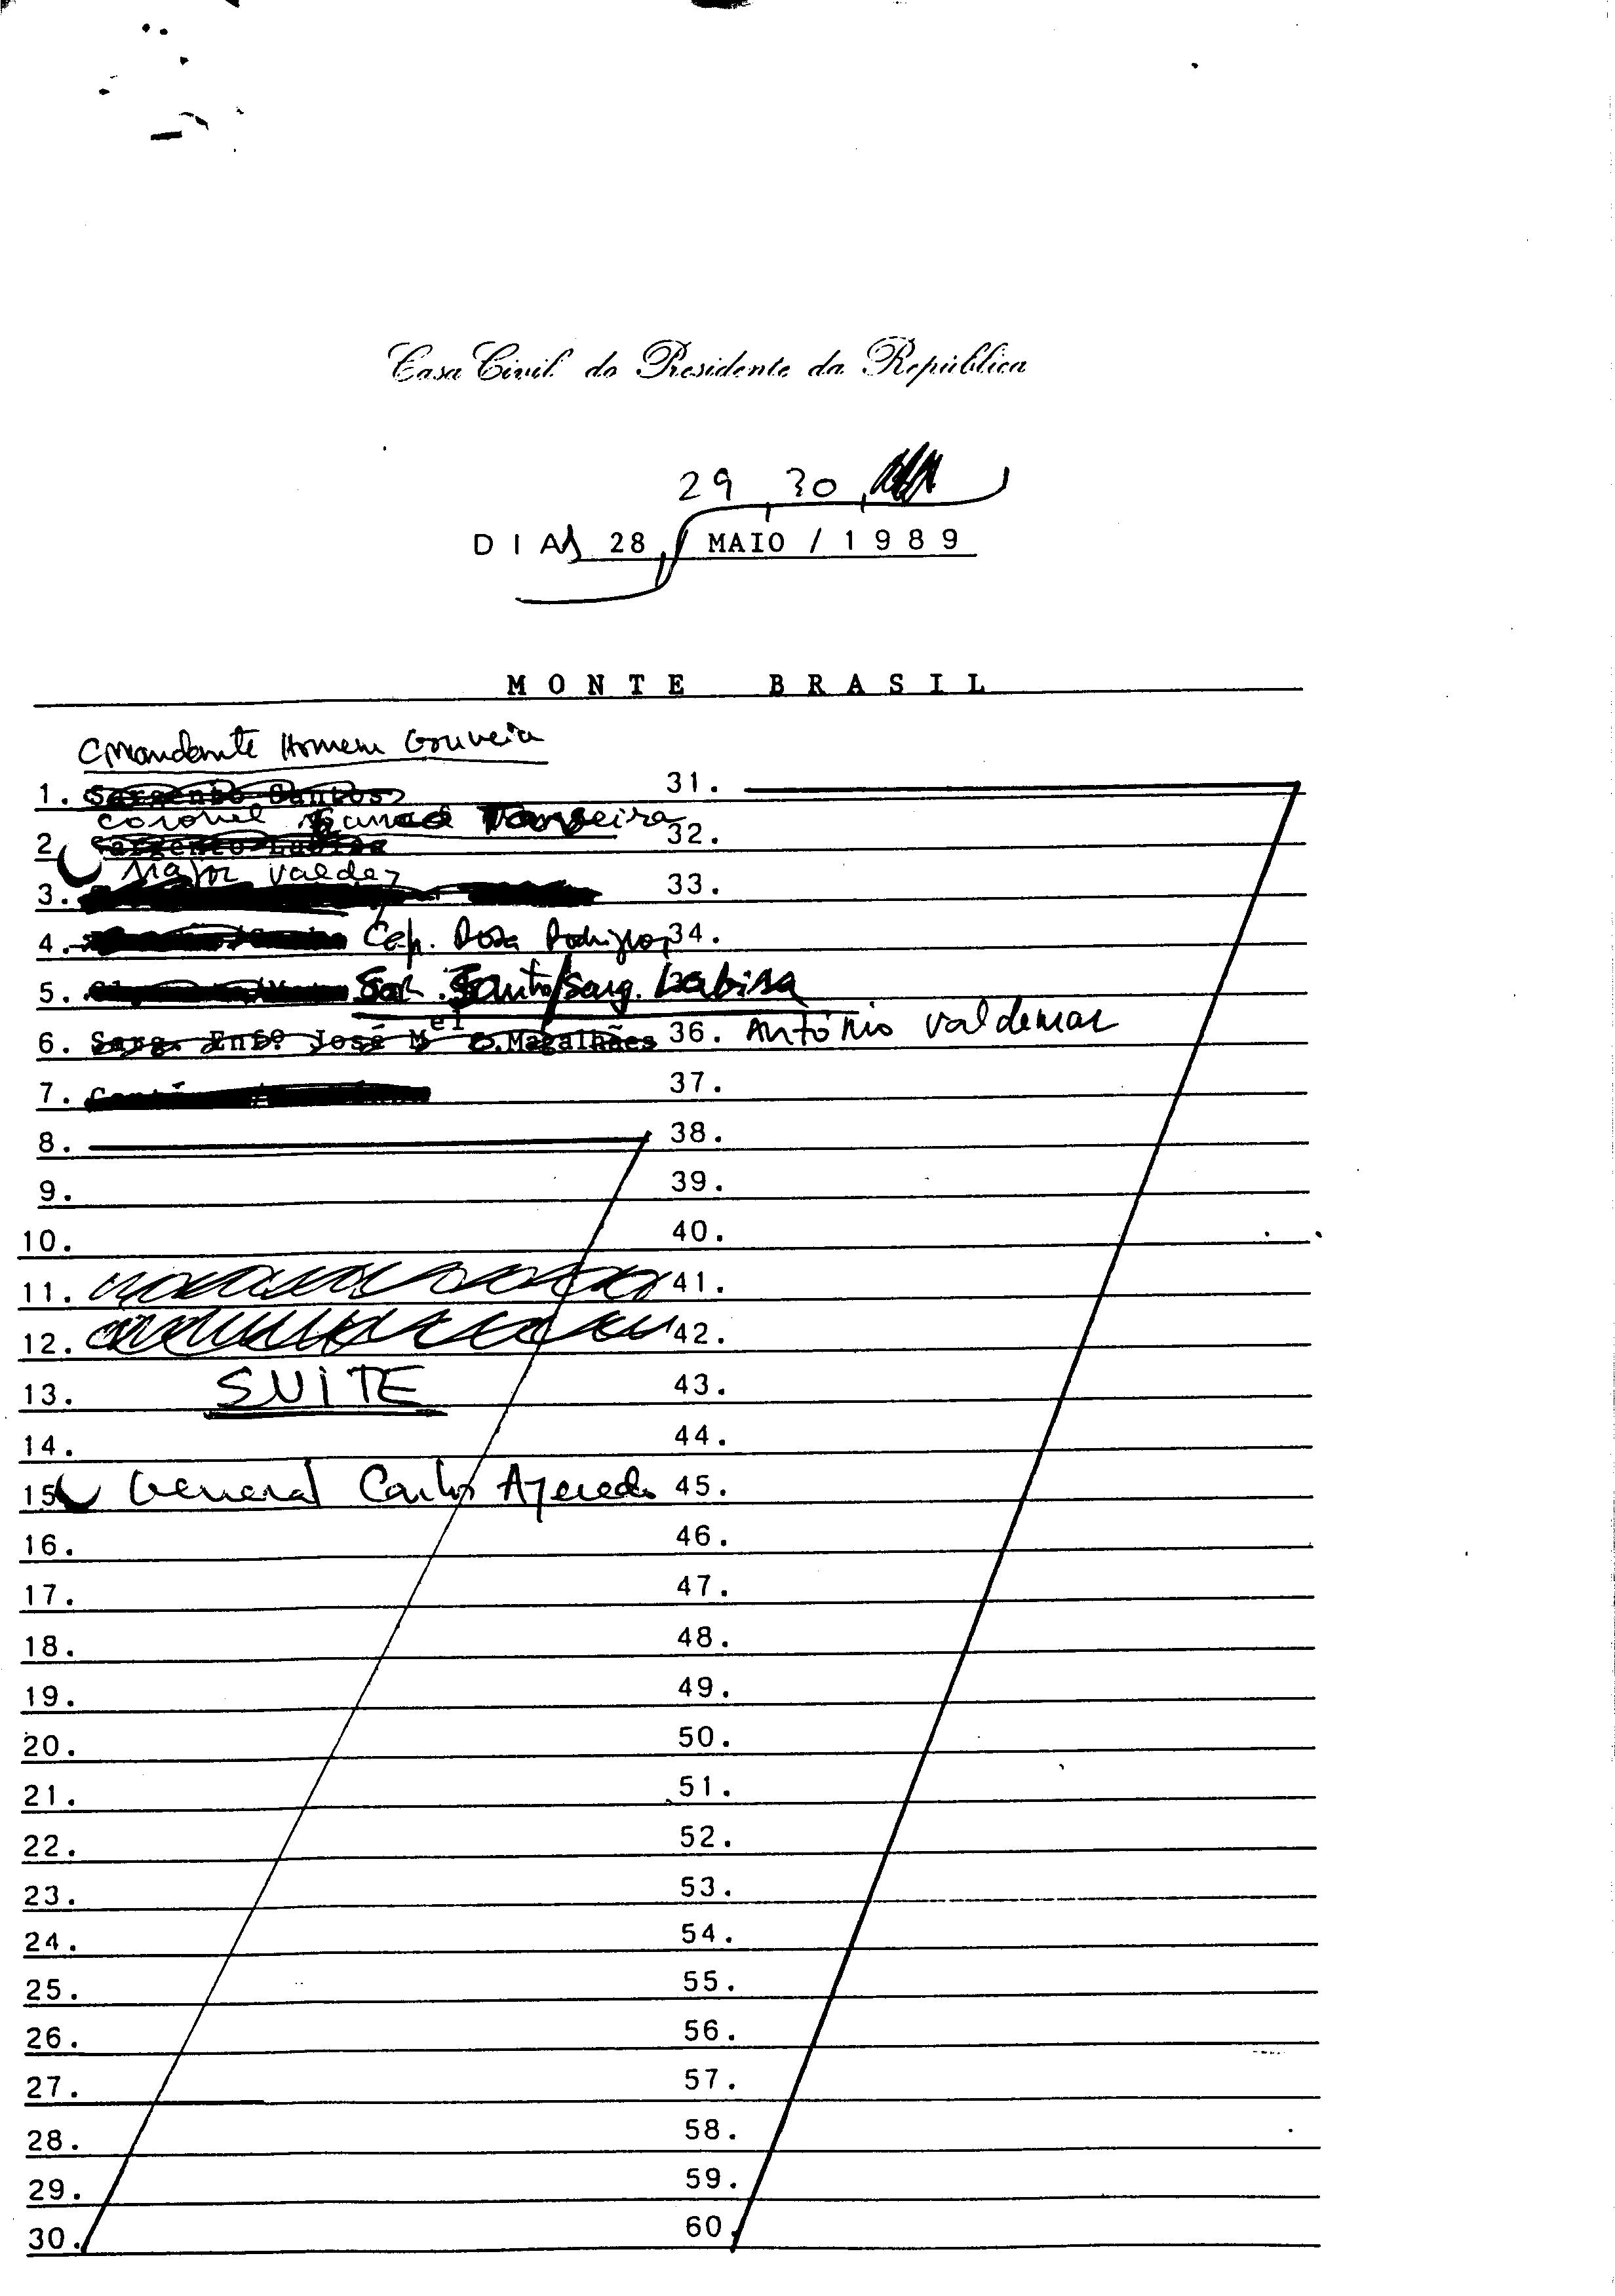 Casa Civil do Presidente da República
29, 30,
DIAS 28, / MAIO / 1989
MONTE BRASIL
Comandante Homem Gouveia
1. Sargento Santos 31.
Coronel
2. Sargento Labisa 32.
Major Valdez
3. 33.
4. Cap. Rosa Rodrigues 34.
5. Sar. Santos/Sarg. Labisa
6. Sarg. Enfº José Mel Magalhães 36. António Valdemar
7. 37.
8. 38.
9. 39.
10. 40.
11. 41.
12. 42.
13. SUITE 43.
14. 44.
15. General Carlos Azeredo 45.
16. 46.
17. 47.
18. 48.
19. 49.
20. 50.
21. 51.
22. 52.
23. 53.
24. 54.
25. 55.
26. 56.
27. 57.
28. 58.
29. 59.
30. 60.